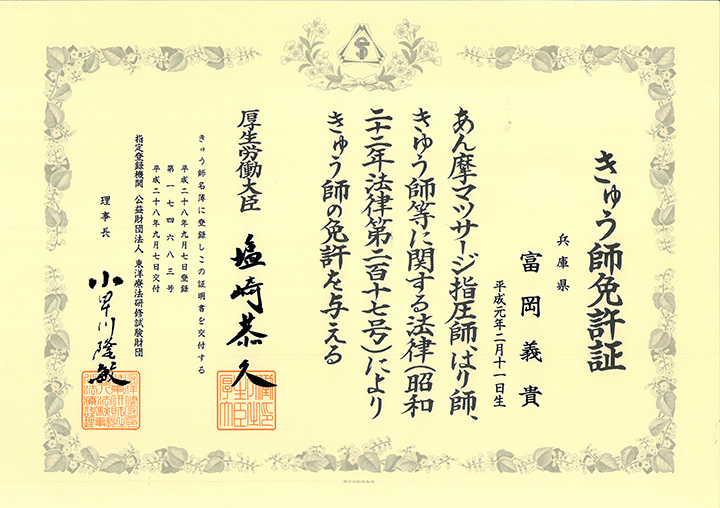 きゅう師免許証
兵庫県
富岡義貴
平成元年二月十一日生
あん摩マツサージ指圧師、はり師、
きゆう師等に関する法律(昭和
二十二年法律第二百十七号)により
きゅう師の免許を与える
厚生労働大臣 塩崎恭久
きゅう師名簿に登録しこの証明書を交付する
平成二十八年九月七日登録
第一七四六八三号
平成二十八年九月七日交付
指定登録機関 公益財団法人 東洋療法研修試験財団
理事長 小早川隆敏